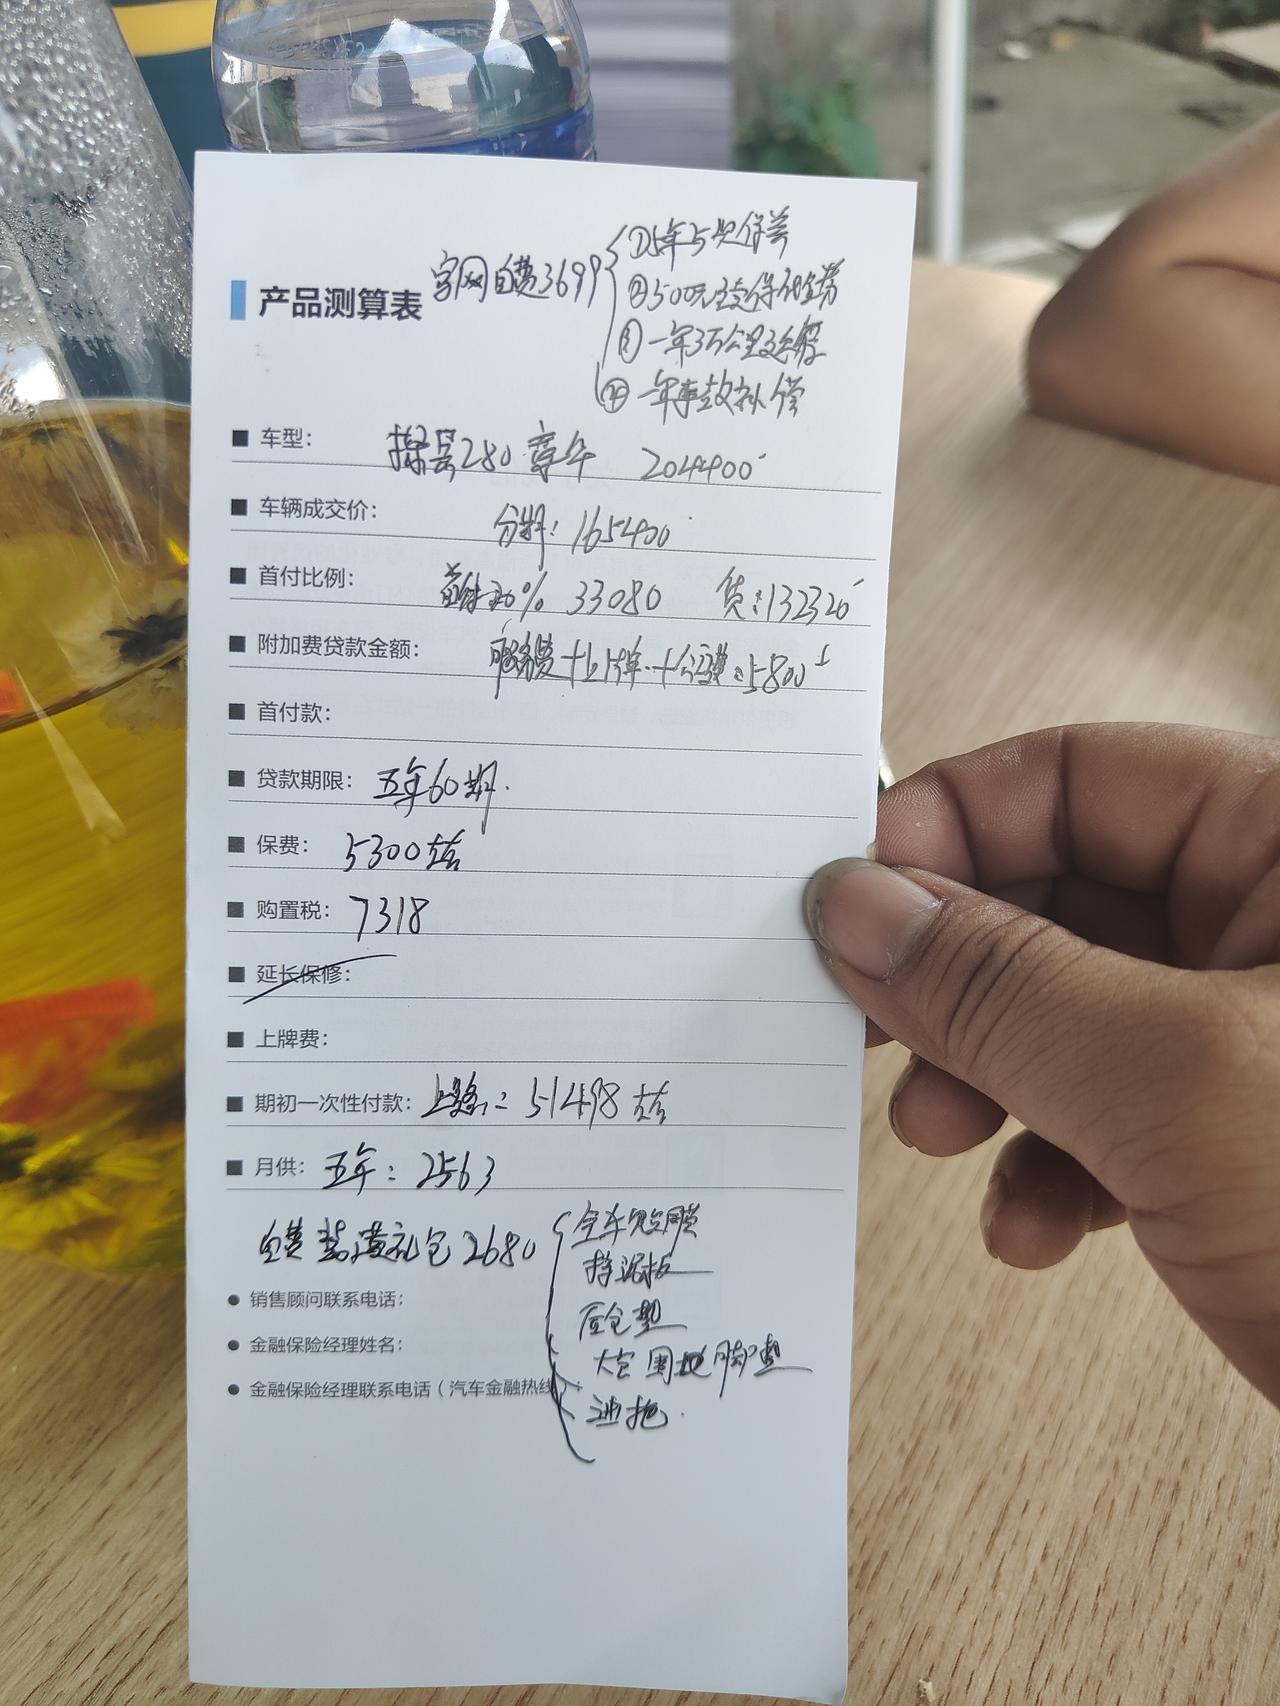 官网自费3699
①5年5次保养
②500元主交保
③一年3万公里延
④一年事故补偿
产品测算表
车型: 探岳280尊年 204400
车辆成交价: 分期: 165400
首付比例: 首付20% 33080 贷:132320
附加费贷款金额: 服务费+上牌+公证费:5800
首付款:
贷款期限: 五年60期.
保费: 5300左右
购置税: 7318
延长保修:
上牌费:
期初一次性付款: 上路: 51498左右
月供: 五年: 2563
自费装潢礼包2680
全车贴膜
挡泥板
后仓垫
大包围 脚垫
迪拖.
销售顾问联系电话:
金融保险经理姓名:
金融保险经理联系电话(汽车金融热线